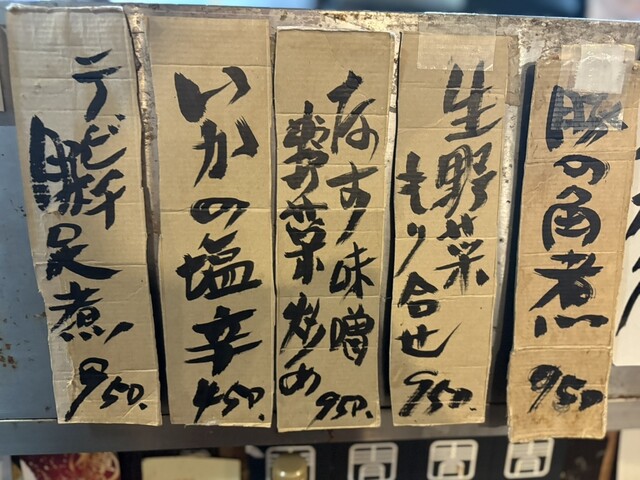 豚の角煮
950
生野菜
もり合せ
950.
なす味噌
野菜炒め
950.
いかの塩辛
450.
テビチ
豚足煮
950.